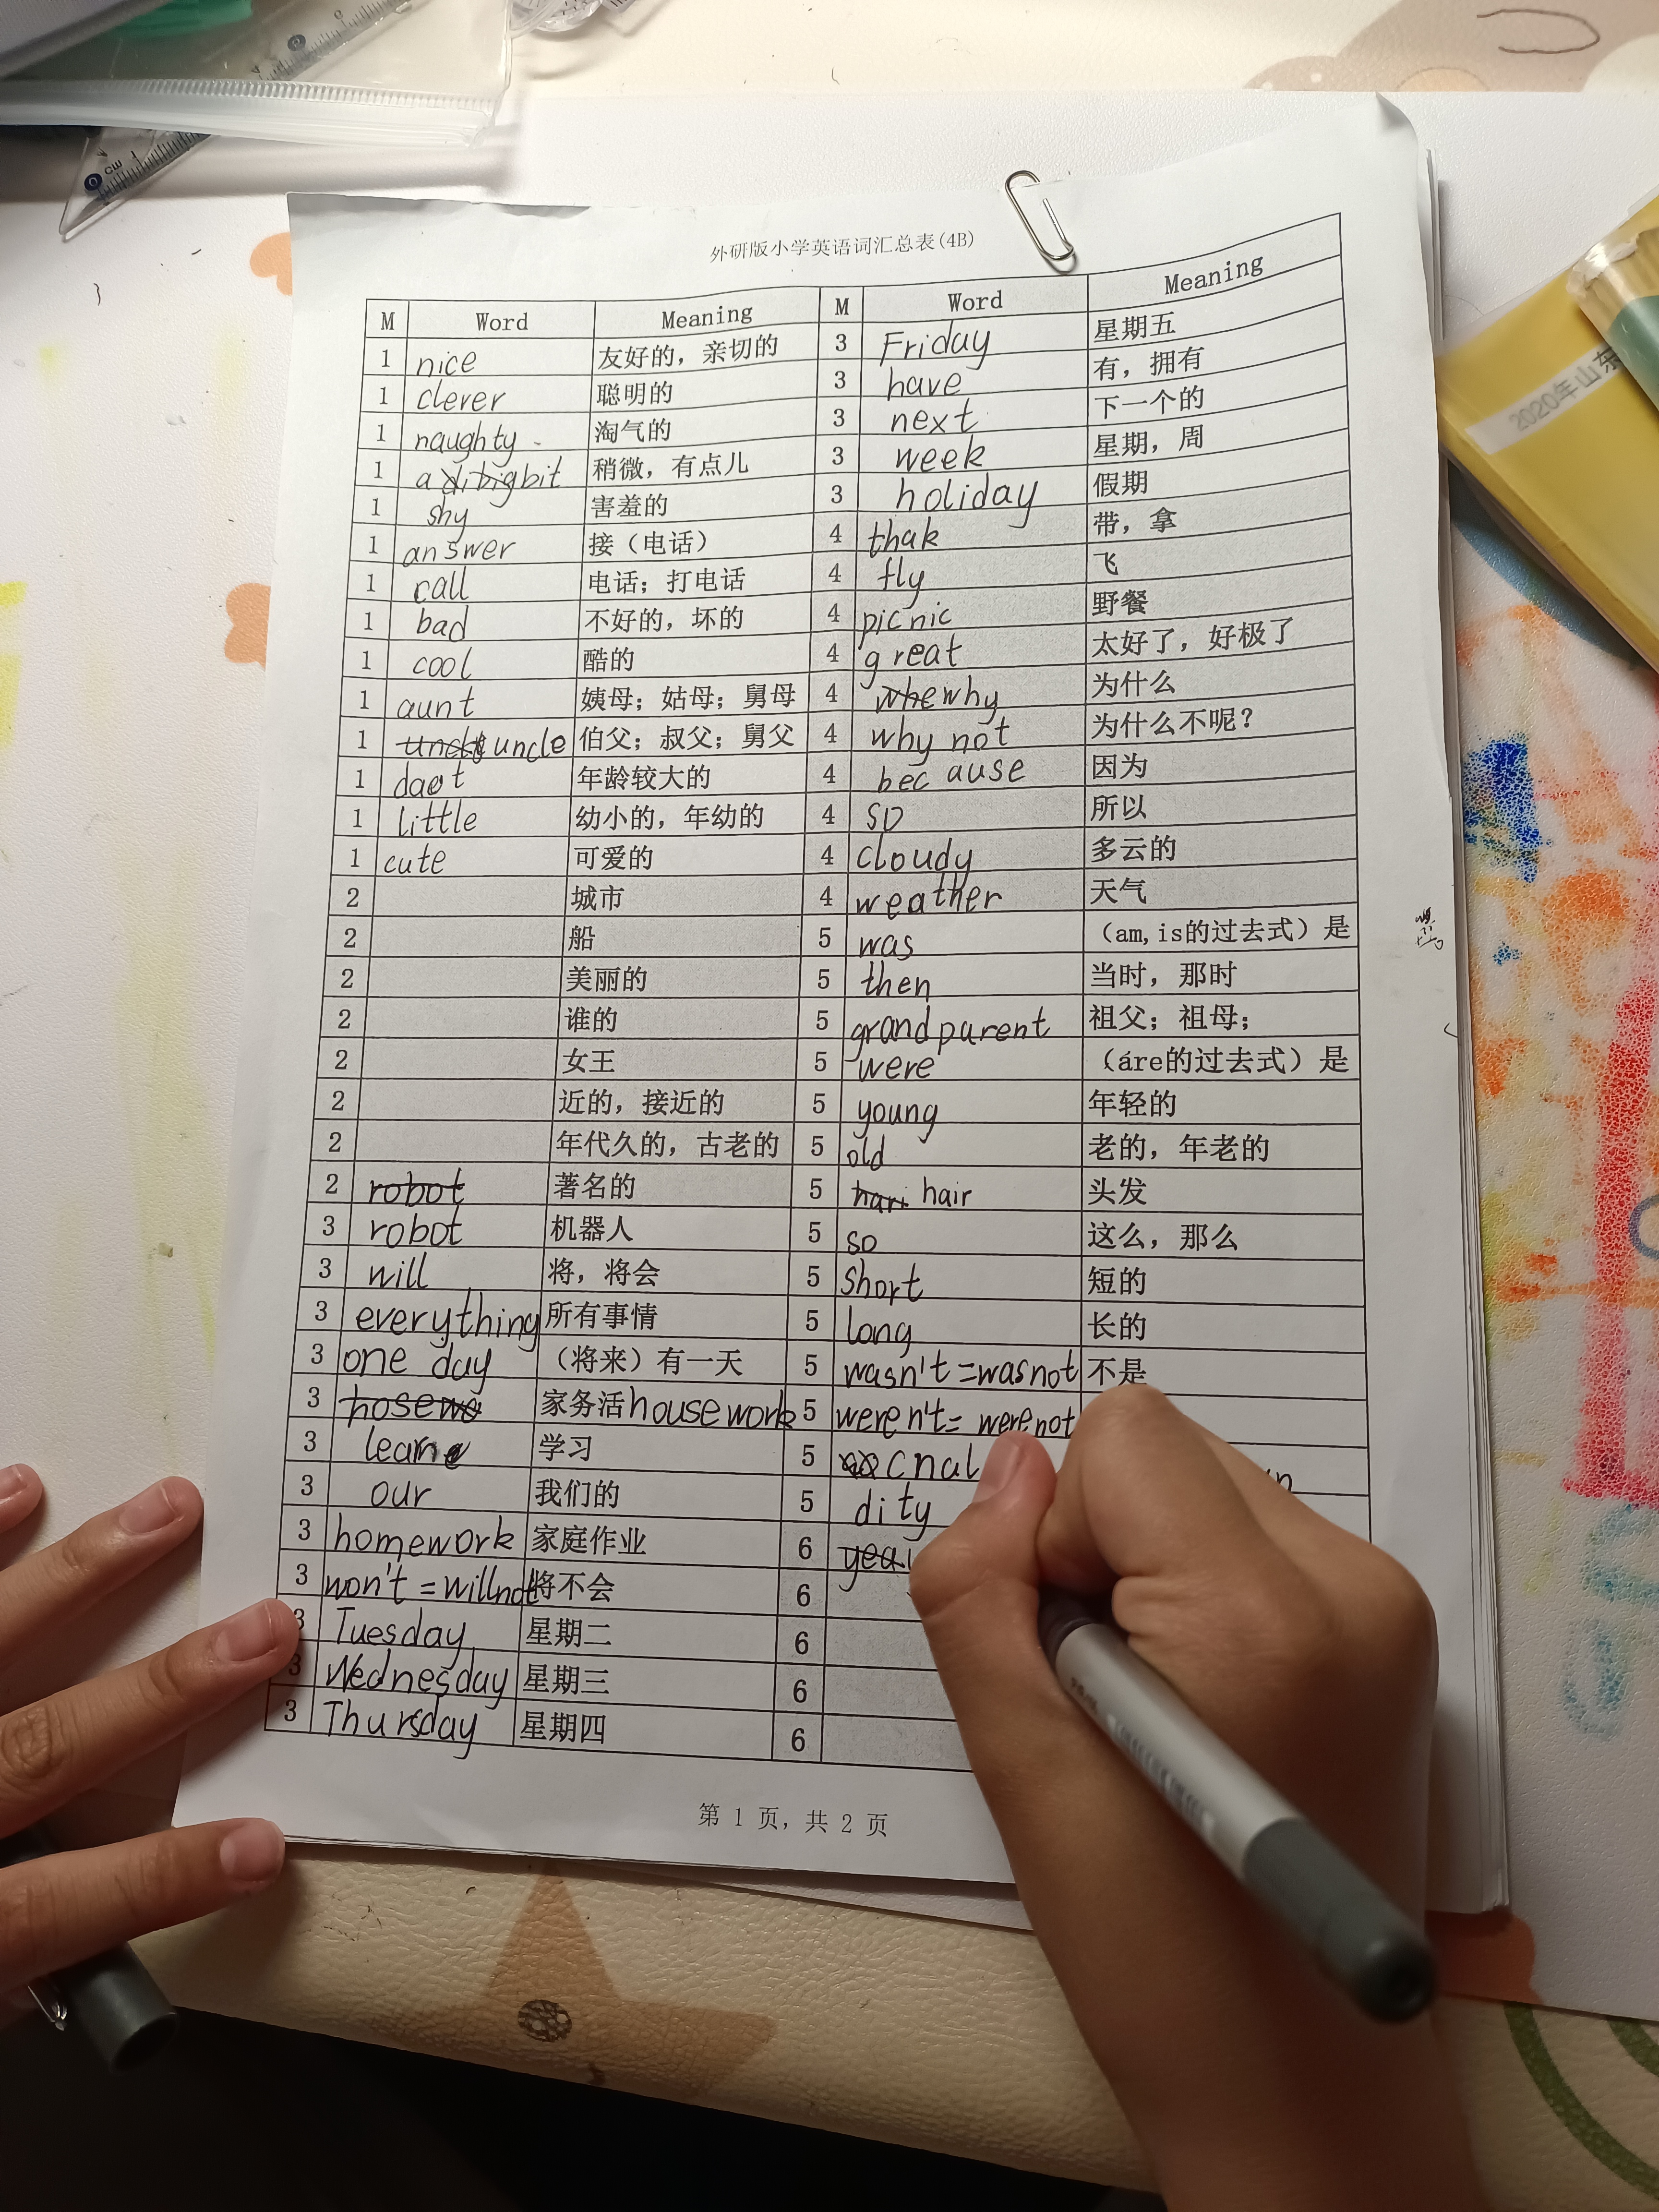 外研版小学英语词汇总表(4B)
M Word Meaning M Word Meaning
1 nice 友好的，亲切的 3 Friday 星期五
1 clever 聪明的 3 have 有，拥有
1 naughty 淘气的 3 next 下一个的
1 a bit 稍微，有点儿 3 week 星期，周
1 shy 害羞的 3 holiday 假期
1 answer 接（电话） 4 thak 带，拿
1 call 电话；打电话 4 fly 飞
1 bad 不好的，坏的 4 picnic 野餐
1 cool 酷的 4 great 太好了，好极了
1 aunt 姨母；姑母；舅母 4 whe why 为什么
1 uncle 伯父；叔父；舅父 4 why not 为什么不呢？
1 年龄较大的 4 because 因为
1 little 幼小的，年幼的 4 so 所以
1 cute 可爱的 4 cloudy 多云的
2 城市 4 weather 天气
2 船 5 was （am,is的过去式）是
2 美丽的 5 then 当时，那时
2 谁的 5 grandparent 祖父；祖母；
2 女王 5 were （are的过去式）是
2 近的，接近的 5 young 年轻的
2 年代久的，古老的 5 old 老的，年老的
2 robot 著名的 5 hari hair 头发
3 robot 机器人 5 so 这么，那么
3 will 将，将会 5 short 短的
3 everything 所有事情 5 long 长的
3 one day （将来）有一天 5 wasn't=was not 不是
3 家务活 housework 5 weren't=were not
3 学习 5 cnal
3 our 我们的 5 dity
3 homework 家庭作业 6
3 won't=will not 将不会 6
3 Tuesday 星期二 6
3 Wednesday 星期三 6
3 Thursday 星期四 6
第 1 页，共 2 页
2020年山东